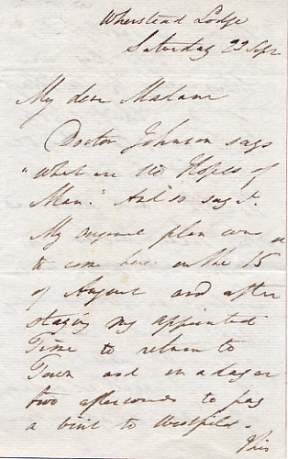 Wherstead Lodge
Saturday 22 Sepr
My dear Madam
Doctor Johnson says
"What are the Hopes of
Man." And so say I.
My original plan was
to come here on the 15
of August and after
staying my appointed
Time to return to
Town and in a day or
two afterwards to pay
a visit to
This